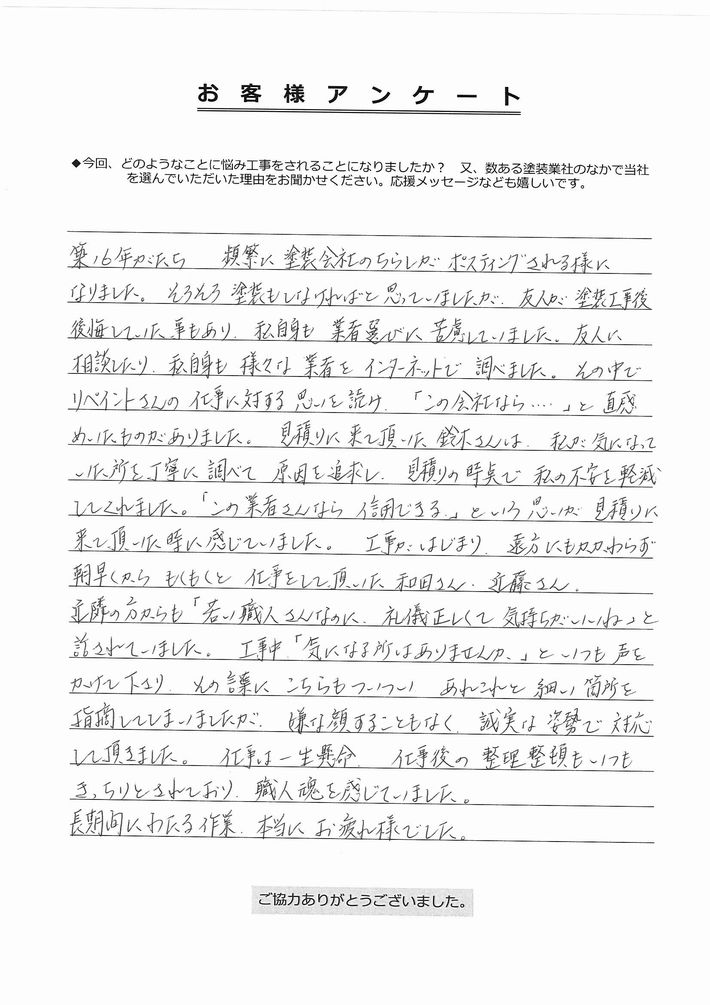 お客様アンケート
◆今回、どのようなことに悩み工事をされることになりましたか？　又、数ある塗装業社のなかで当社
を選んでいただいた理由をお聞かせください。応援メッセージなども嬉しいです。
築16年がたち　頻繁に塗装会社のちらしが ポスティングされる様に
なりました。そろそろ塗装もしなければと思っていましたが、友人が塗装工事後
後悔していた事もあり、私自身も 業者選びに苦慮していました。友人に
相談したり、私自身も様々な業者をインターネットで調べました。その中で
リペイントさんの仕事に対する思いを読け、「この会社なら‥‥」と直感
めいたものがありました。見積りに来て頂いた鈴木さんは、私が気になって
いた所を丁寧に調べて 原因を追求し、見積りの時点で私の不安を軽減
してくれました。「この業者さんなら 信用できる。」という思いが見積りに
来て頂いた時に感じていました。工事がはじまり、遠方にもかかわらず
朝早くから もくもくと 仕事をして頂いた和田さん、近藤さん。
近隣の方からも「若い職人さんなのに、礼儀正しくて気持ちがいいね」と
話されていました。工事中「気になる所はありませんか。」といつも声を
かけて下さり、その言葉に こちらもついつい あれこれと細い箇所を
指摘してしまいましたが、嫌な顔することもなく、誠実な姿勢で対応
して頂きました。仕事は一生懸命、仕事後の整理整頓もいつも
きっちりとされており、職人魂を感じていました。
長期間にわたる作業、本当にお疲れ様でした。
ご協力ありがとうございました。